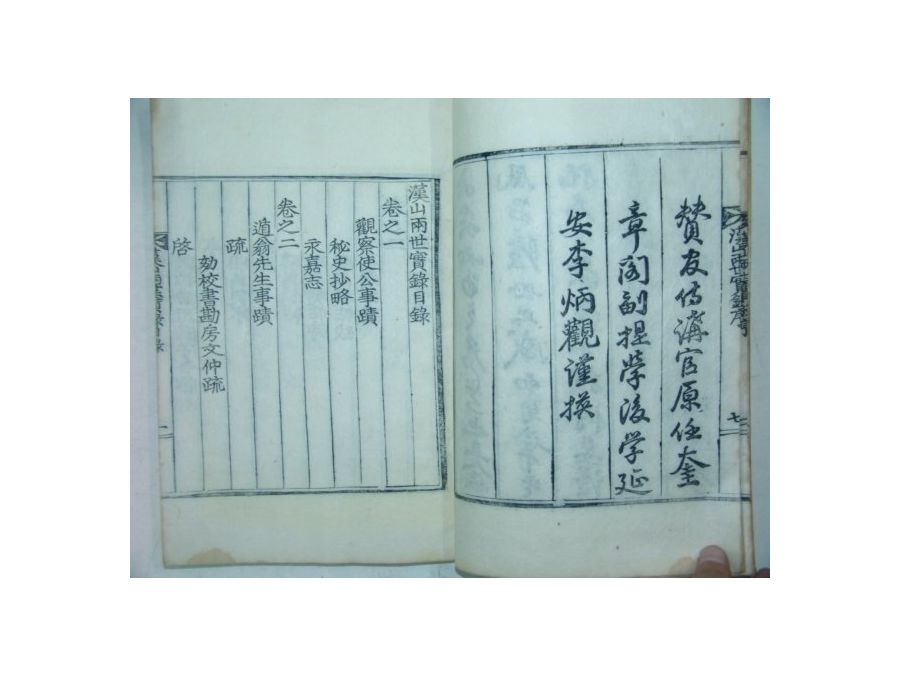 漢山兩世實錄序
七
贊友侍講官原任奎
章閣副提學後學延
安李炳觀謹撰
漢山兩世實錄目錄
卷之一
觀察使公事蹟
秘史抄略
永嘉志
卷之二
遁翁先生事蹟
疏
劾校書勘房文仲疏
啓